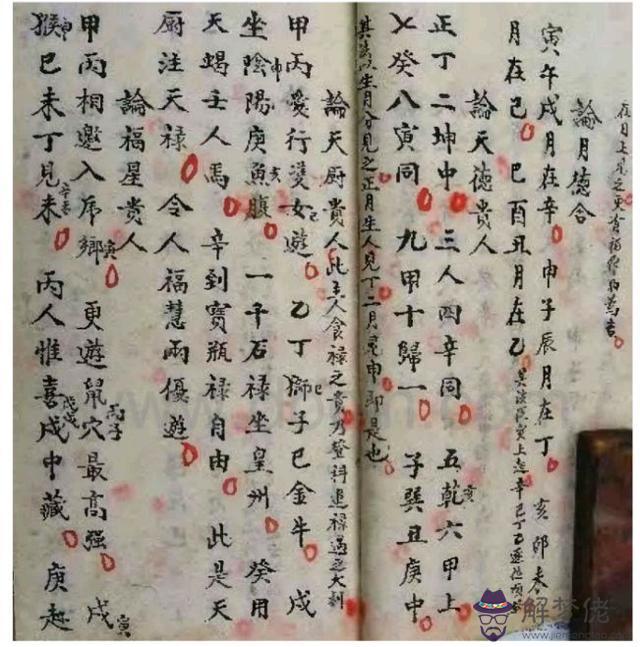 論月德合
寅午戌月在辛 申子辰月在丁 亥卯未
月在己 巳酉丑月在乙
論天德貴人
正丁二坤中 三人四辛同 五乾六甲上
七癸八寅同 九甲十歸一 子巽丑庚中
其法以生月合見之正月生人見丁二月見申即是也
論天厨貴人此主人食祿之貴乃登科進祿
甲丙愛行雙女遊 乙丁獅子己金牛 戊
坐陰陽庚魚腹 一千石祿坐皇州 癸用
天蝎壬人馬 辛到寶瓶祿自由 此是天
厨注天祿 令人福慧兩優遊
論福星貴人
甲丙相邀入虎鄉 更遊鼠穴最高強 戊
猴己未丁見未 丙人惟喜戌中藏 庚趂
解梦佬